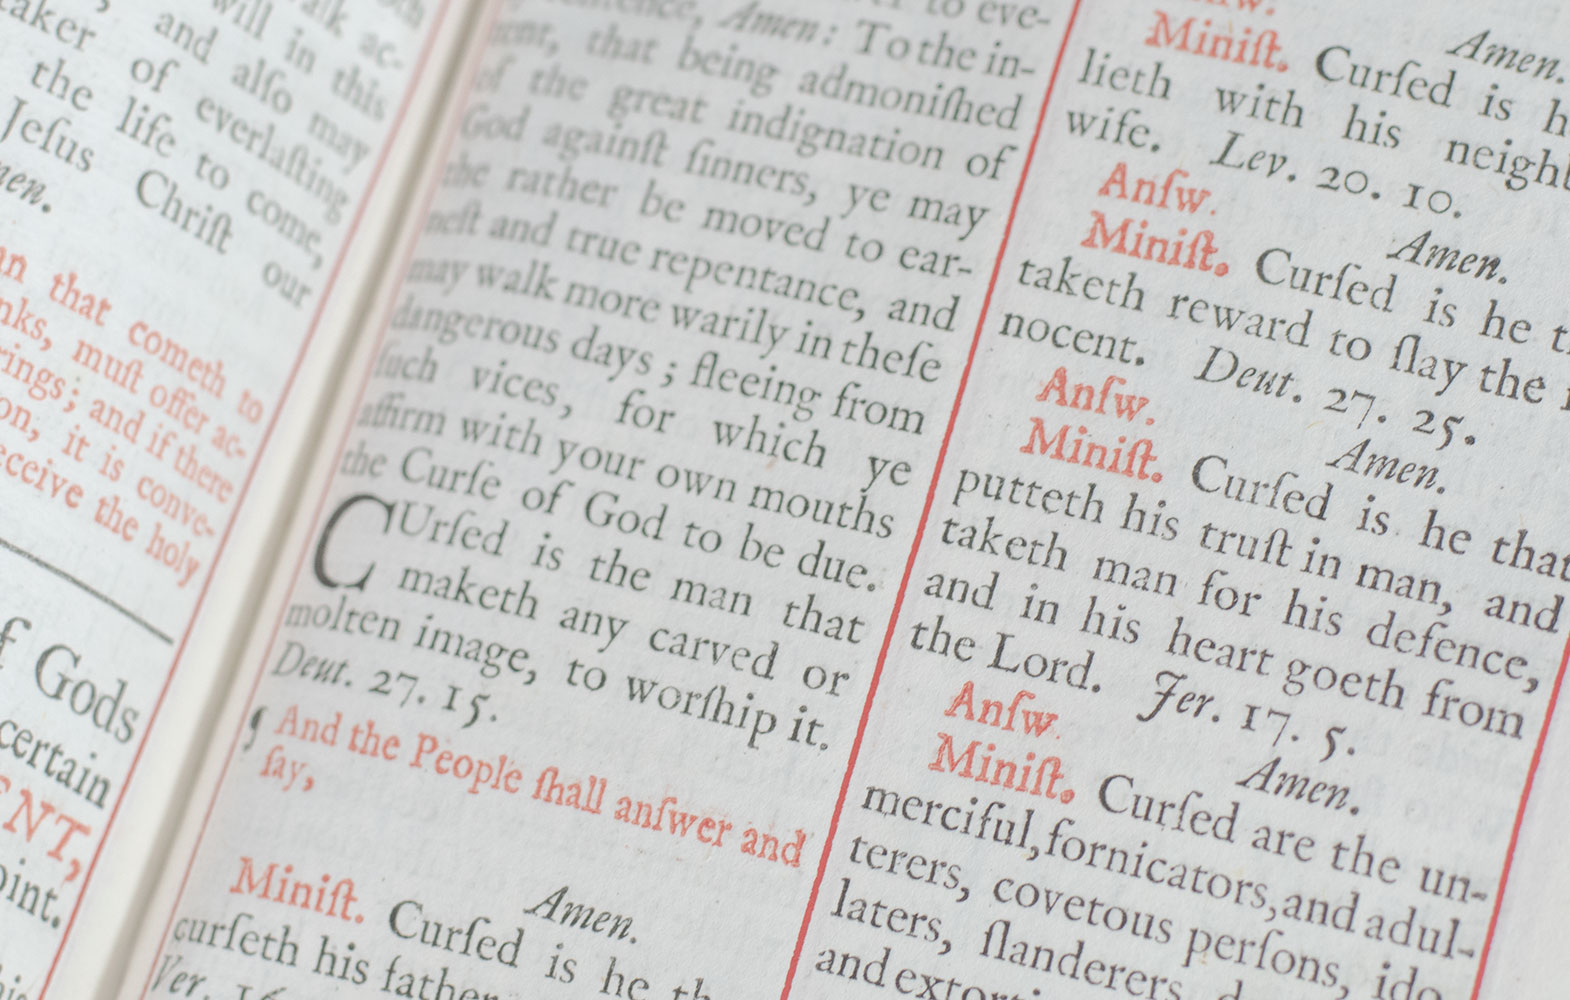 alk ac-
will in this
and alſo may
aker of everlaſting
the life to come,
Jeſus Chriſt our
men.
an that cometh to
nks, muſt offer ac-
rings; and if there
on, it is conve-
eceive the holy
f Gods
certain
ENT,
oint.
to eve-
Amen: To the in-
tent, that being admoniſhed
of the great indignation of
God againſt ſinners, ye may
the rather be moved to ear-
neſt and true repentance, and
may walk more warily in theſe
dangerous days; fleeing from
ſuch vices, for which ye
affirm with your own mouths
the Curſe of God to be due.
CUrſed is the man that
maketh any carved or
molten image, to worſhip it.
Deut. 27. 15.
¶ And the People ſhall anſwer and
ſay,
Amen.
Miniſt. Curſed is he th
curſeth his father
Ver. 16
Anſw.
Amen.
Miniſt. Curſed is h
lieth with his neighb
wife. Lev. 20. 10.
Anſw.
Amen.
Miniſt. Curſed is he t
taketh reward to ſlay the i
nocent. Deut. 27. 25.
Anſw.
Amen.
Miniſt. Curſed is he that
putteth his truſt in man, and
taketh man for his defence,
and in his heart goeth from
the Lord. Jer. 17. 5.
Anſw.
Amen.
Miniſt. Curſed are the un-
merciful, fornicators, and adul-
terers, covetous perſons, ido
laters, ſlanderers, d
and extorti